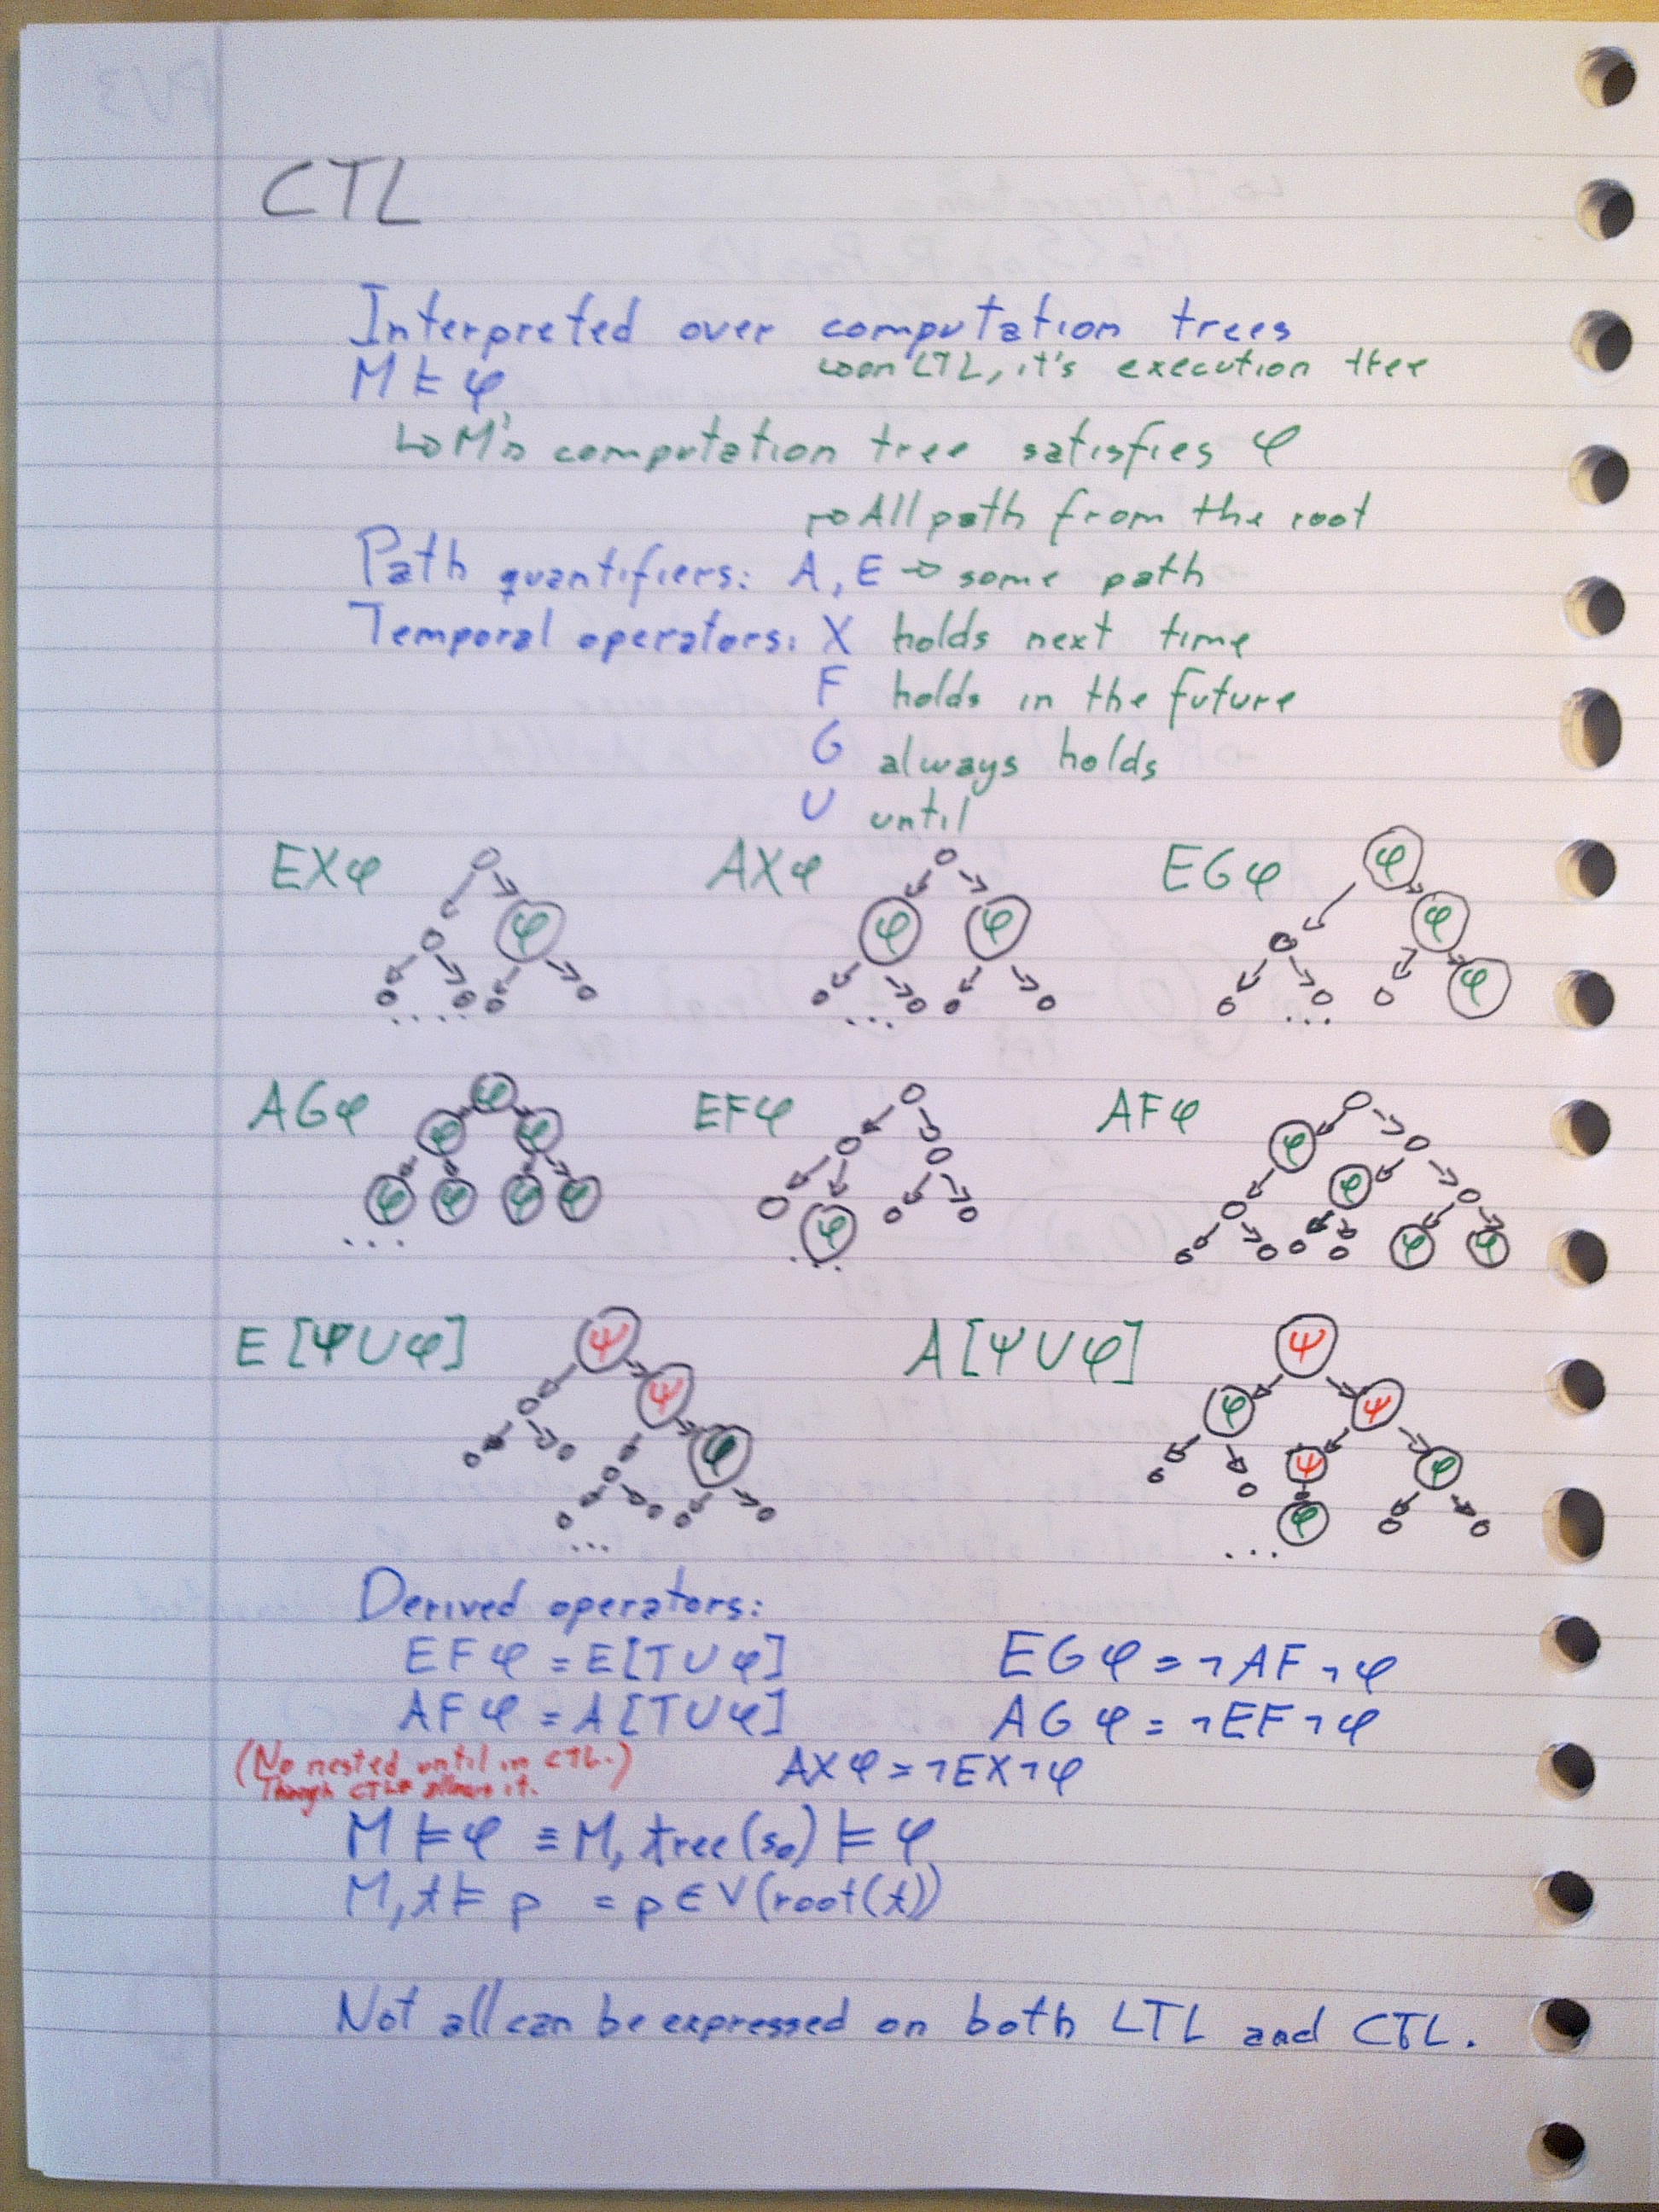 CTL
Interpreted over computation trees
↳ on LTL, it's execution tree
M ⊨ φ
↳ M's computation tree satisfies φ
↱ All path from the root
Path quantifiers: A, E → some path
Temporal operators: X holds next time
F holds in the future
G always holds
U until
EXφ φ
AXφ φ φ
EGφ φ φ φ
...
...
...
AGφ φ φ φ φ φ φ φ
EFφ φ
AFφ φ φ φ φ
...
...
E[ΨUφ] Ψ Ψ φ
A[ΨUφ] Ψ φ Ψ Ψ φ φ
...
...
Derived operators:
EFφ = E[TUφ] EGφ = ¬AF¬φ
AFφ = A[TUφ] AGφ = ¬EF¬φ
(No nested until in CTL.) AXφ = ¬EX¬φ
Though CTL* allows it.
M ⊨ φ ≡ M, tree(s₀) ⊨ φ
M, t ⊨ p = p ∈ V(root(t))
Not all can be expressed on both LTL and CTL.